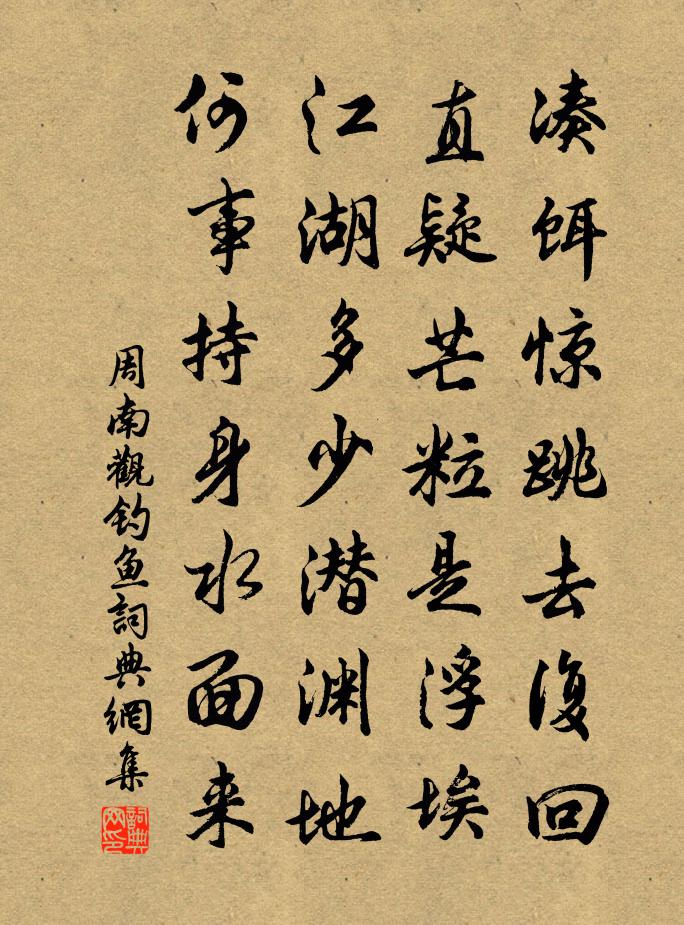 凑饵惊跳去復回
直疑芒粒是浮埃
江湖多少潜渊地
何事持身水面来
周南觀钓鱼詞典網集
詞典网印